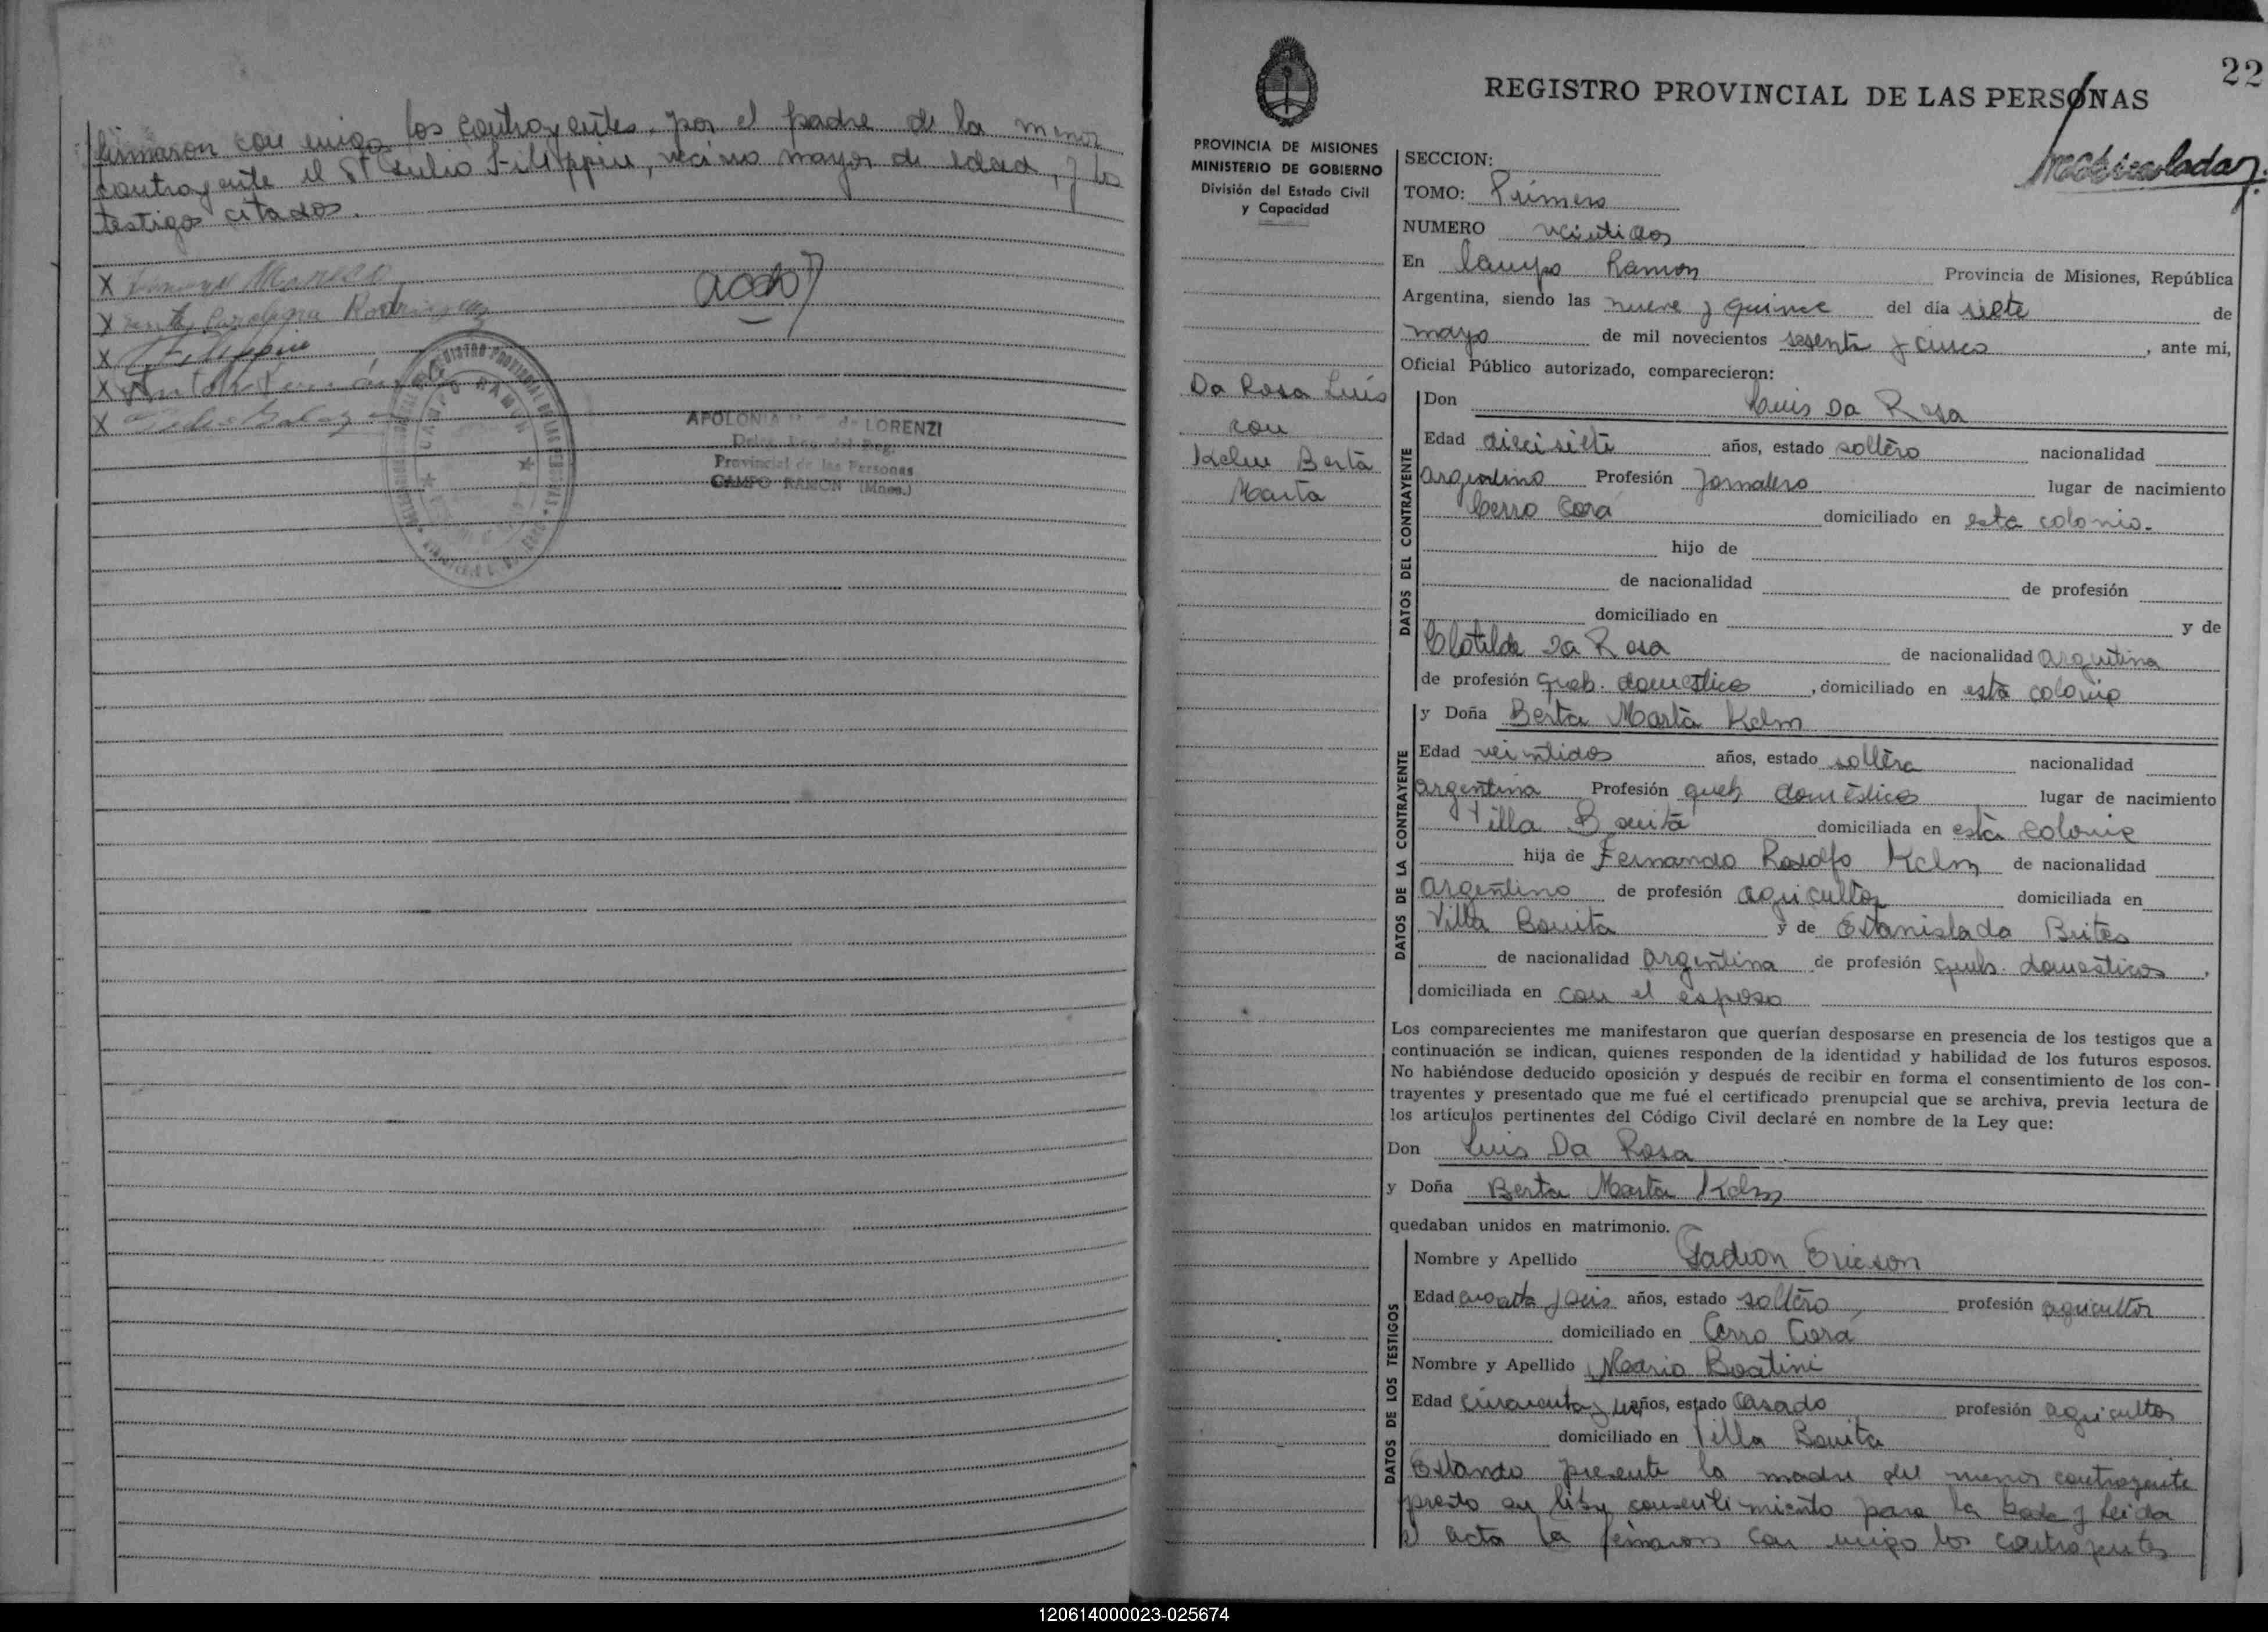 firmaron con migo los contrayentes. por el padre de la menor
contrayente el Sr Julio Filippin, vecino mayor de edad, y los
testigos citados.
X
X Rodriguez
X Filippin
X
X
APOLONIA de LORENZI
Provincial de las Personas
CAMPO RAMON (Mnes.)
22
REGISTRO PROVINCIAL DE LAS PERSONAS
PROVINCIA DE MISIONES
MINISTERIO DE GOBIERNO
División del Estado Civil
y Capacidad
SECCION:
TOMO: Primero
NUMERO veintidos
En Campo Ramon Provincia de Misiones, República
Argentina, siendo las nueve y quince del día siete de
mayo de mil novecientos sesenta y cinco, ante mi,
Oficial Público autorizado, comparecieron:
Da Rosa Luis
con
Kelm Berta
Marta
DATOS DEL CONTRAYENTE
Don Luis Da Rosa
Edad diecisiete años, estado soltero nacionalidad
argentino Profesión Jornalero lugar de nacimiento
Cerro Corá domiciliado en esta colonia.
hijo de
de nacionalidad de profesión
domiciliado en y de
Clotilde Da Rosa de nacionalidad argentina
de profesión queh. domestico, domiciliado en esta colonia
DATOS DE LA CONTRAYENTE
y Doña Berta Marta Kelm
Edad veintidos años, estado soltera nacionalidad
argentina Profesión queh domestico lugar de nacimiento
Villa Bonita domiciliada en esta colonia
hija de Fernando Rodolfo Kelm de nacionalidad
argentino de profesión agricultor domiciliada en
Villa Bonita y de Estanislada Brites
de nacionalidad argentina de profesión queh. domesticos,
domiciliada en con el esposo
Los comparecientes me manifestaron que querían desposarse en presencia de los testigos que a
continuación se indican, quienes responden de la identidad y habilidad de los futuros esposos.
No habiéndose deducido oposición y después de recibir en forma el consentimiento de los con-
trayentes y presentado que me fué el certificado prenupcial que se archiva, previa lectura de
los artículos pertinentes del Código Civil declaré en nombre de la Ley que:
Don Luis Da Rosa
y Doña Berta Marta Kelm
quedaban unidos en matrimonio.
DATOS DE LOS TESTIGOS
Nombre y Apellido Ericson
Edad cuarenta y seis años, estado soltero, profesión agricultor
domiciliado en Cerro Corá
Nombre y Apellido Mario Boatini
Edad cincuenta y un años, estado Casado profesión agricultor
domiciliado en Villa Bonita
Estando presente la madre del menor contrayente
presto su libre consentimiento para la boda y leida
el acta la firmaron con migo los contrayentes
120614000023-025674